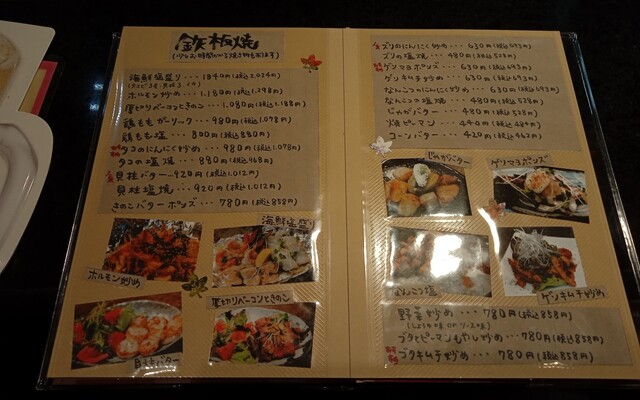 鉄板焼
海鮮塩盛り・・・1840円(税込2,024円)
ホルモン炒め・・・1,180円(税込1,298円)
厚切りベーコンときのこ・・・1,080円(税込1,188円)
鶏ももガーリック・・・980円(税込1,078円)
鶏もも塩・・・800円(税込880円)
タコのにんにく炒め・・・980円(税込1,078円)
タコの塩焼・・・880円(税込968円)
貝柱バター・・・920円(税込1,012円)
貝柱塩焼・・・920円(税込1,012円)
きのこバターポン酢・・・780円(税込858円)
海鮮塩盛り
ホルモン炒め
厚切りベーコンときのこ
貝柱バター
ズリのにんにく炒め・・・630円(税込693円)
ズリの塩焼・・・480円(税込528円)
ゲソマヨポンズ・・・630円(税込693円)
ゲソキムチ炒め・・・630円(税込693円)
なんこつのにんにく炒め・・・630円(税込693円)
なんこつの塩焼・・・480円(税込528円)
じゃがバター・・・480円(税込528円)
焼ピーマン・・・440円(税込484円)
コーンバター・・・420円(税込462円)
じゃがバター
ゲソマヨポンズ
なんこつ塩
ゲソキムチ炒め
野菜炒め・・・780円(税込858円)
(しょうゆ味 or ソース味)
ブタとピーマンもやし炒め・・・780円(税込858円)
ブタキムチ炒め・・・780円(税込858円)